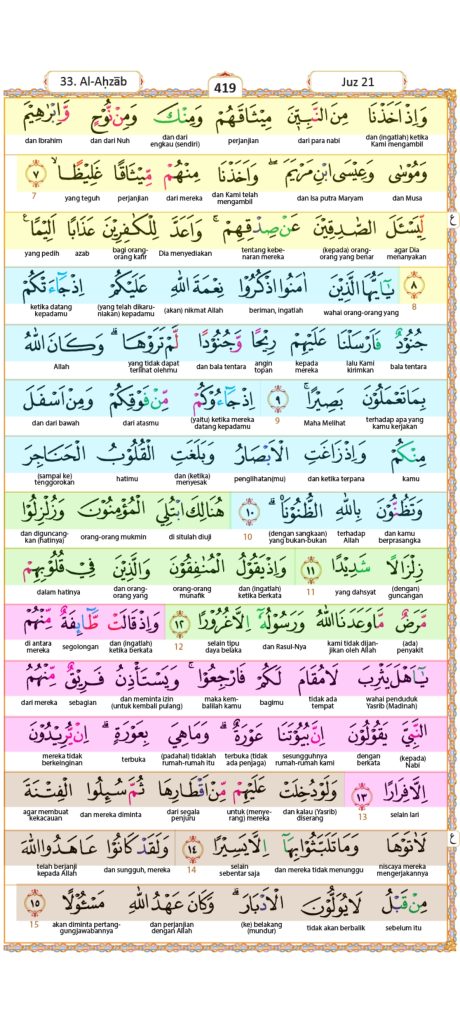 33. Al-Aḥzāb
419
Juz 21
وَاِذْ اَخَذْنَا مِنَ النَّبِيّٖنَ مِيْثَاقَهُمْ وَمِنْكَ وَمِنْ نُّوْحٍ وَّاِبْرٰهِيْمَ
dan (ingatlah) ketika Kami mengambil dari para nabi perjanjian dan dari engkau (sendiri) dan dari Nuh dan Ibrahim
وَمُوْسٰى وَعِيْسَى ابْنِ مَرْيَمَ ۖ وَاَخَذْنَا مِنْهُمْ مِّيْثَاقًا غَلِيْظًا ۙ ٧
dan Musa dan Isa putra Maryam dan Kami telah mengambil dari mereka perjanjian yang teguh 7
لِّيَسْـَٔلَ الصّٰدِقِيْنَ عَنْ صِدْقِهِمْ ۚ وَاَعَدَّ لِلْكٰفِرِيْنَ عَذَابًا اَلِيْمًا ࣖ
agar Dia menanyakan (kepada) orang-orang yang benar tentang kebenaran mereka Dia menyediakan bagi orang-orang kafir azab yang pedih
٨ يٰٓاَيُّهَا الَّذِيْنَ اٰمَنُوا اذْكُرُوْا نِعْمَةَ اللّٰهِ عَلَيْكُمْ اِذْ جَاۤءَتْكُمْ
8 wahai orang-orang yang beriman, ingatlah (akan) nikmat Allah (yang telah dikaruniakan) kepadamu ketika datang kepadamu
جُنُوْدٌ فَاَرْسَلْنَا عَلَيْهِمْ رِيْحًا وَّجُنُوْدًا لَّمْ تَرَوْهَا ۗ وَكَانَ اللّٰهُ
bala tentara lalu Kami kirimkan kepada mereka angin topan dan bala tentara yang tidak dapat terlihat olehmu Allah
بِمَا تَعْمَلُوْنَ بَصِيْرًا ۚ ٩ اِذْ جَاۤءُوْكُمْ مِّنْ فَوْقِكُمْ وَمِنْ اَسْفَلَ
terhadap apa yang kamu kerjakan Maha Melihat 9 (yaitu) ketika mereka datang kepadamu dari atasmu dan dari bawah
مِنْكُمْ وَاِذْ زَاغَتِ الْاَبْصَارُ وَبَلَغَتِ الْقُلُوْبُ الْحَنَاجِرَ
kamu dan ketika terpana penglihatan(mu) dan (ketika) menyesak hatimu (sampai ke) tenggorokan
وَتَظُنُّوْنَ بِاللّٰهِ الظُّنُوْنَا ۗ ١٠ هُنَالِكَ ابْتُلِيَ الْمُؤْمِنُوْنَ وَزُلْزِلُوْا
dan kamu berprasangka terhadap Allah (dengan sangkaan) yang bukan-bukan 10 di situlah diuji orang-orang mukmin dan diguncangkan (hatinya)
زِلْزَالًا شَدِيْدًا ١١ وَاِذْ يَقُوْلُ الْمُنٰفِقُوْنَ وَالَّذِيْنَ فِيْ قُلُوْبِهِمْ
(dengan) guncangan yang dahsyat 11 dan (ingatlah) ketika berkata orang-orang munafik dan orang-orang yang dalam hatinya
مَّرَضٌ مَّا وَعَدَنَا اللّٰهُ وَرَسُوْلُهٗٓ اِلَّا غُرُوْرًا ١٢ وَاِذْ قَالَتْ طَّاۤىِٕفَةٌ مِّنْهُمْ
(ada) penyakit kami tidak dijanjikan oleh Allah dan Rasul-Nya selain tipu daya belaka 12 dan (ingatlah) ketika berkata segolongan di antara mereka
يٰٓاَهْلَ يَثْرِبَ لَا مُقَامَ لَكُمْ فَارْجِعُوْا ۚ وَيَسْتَأْذِنُ فَرِيْقٌ مِّنْهُمُ
wahai penduduk Yasrib (Madinah) tidak ada tempat bagimu maka kembalilah kamu dan meminta izin (untuk kembali pulang) sebagian dari mereka
النَّبِيَّ يَقُوْلُوْنَ اِنَّ بُيُوْتَنَا عَوْرَةٌ ۗ وَمَا هِيَ بِعَوْرَةٍ ۗ اِنْ يُّرِيْدُوْنَ
(kepada) Nabi dengan berkata sesungguhnya rumah-rumah kami terbuka (tidak ada penjaga) (padahal) tidaklah rumah-rumah itu terbuka mereka tidak berkeinginan
اِلَّا فِرَارًا ١٣ وَلَوْ دُخِلَتْ عَلَيْهِمْ مِّنْ اَقْطَارِهَا ثُمَّ سُىِٕلُوا الْفِتْنَةَ
selain lari 13 dan kalau (Yasrib) diserang untuk (menyerang) mereka dari segala penjuru dan mereka diminta agar membuat kekacauan
لَاٰتَوْهَا وَمَا تَلَبَّثُوْا بِهَآ اِلَّا يَسِيْرًا ١٤ وَلَقَدْ كَانُوْا عَاهَدُوا اللّٰهَ
niscaya mereka mengerjakannya dan mereka tidak menunggu selain sebentar saja 14 dan sungguh, mereka telah berjanji kepada Allah
مِنْ قَبْلُ لَا يُوَلُّوْنَ الْاَدْبَارَ ۗ وَكَانَ عَهْدُ اللّٰهِ مَسْـُٔوْلًا ١٥
sebelum itu tidak akan berbalik (ke) belakang (mundur) dan perjanjian dengan Allah akan diminta pertanggungjawabannya 15
ع
ع